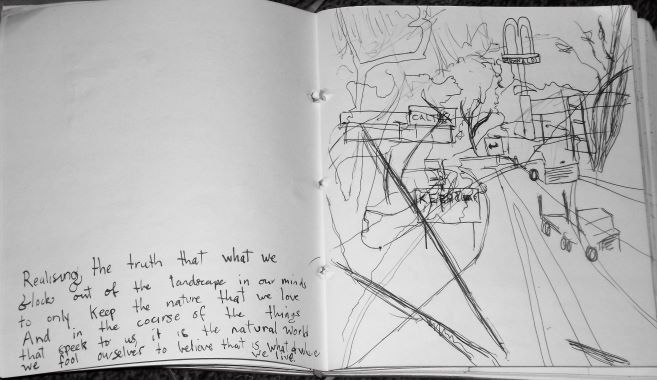 Realising the truth that what we
blocks out of the landscape in our minds
to only keep the nature that we love
And in the course of the things
that speek to us, it is the natural world
we fool ourselves to believe that is what & where
we live
CALTEX